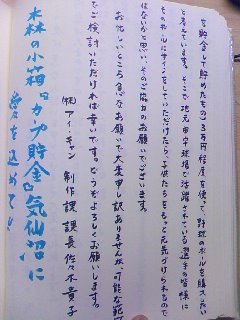 を貯金して貯めたもの3万円程度を使って、野球のボールを購入したい
と考えています。そこで地元甲子球場で活躍されている選手の皆様に
そのボールにサインをしていただけたら、子供たちをもっと元気づけられるので
はないかと思い、そのご協力のお願いでございます。
お忙しいところ急なお願いで大変申し訳ありませんが、可能な範
でご検討いただければ幸いです。どうぞよろしくお願いします。
㈱アイ・キャン 制作課 課長 佐々木貴子
森の小箱『カブ貯金』気仙沼に
愛を込めて!!